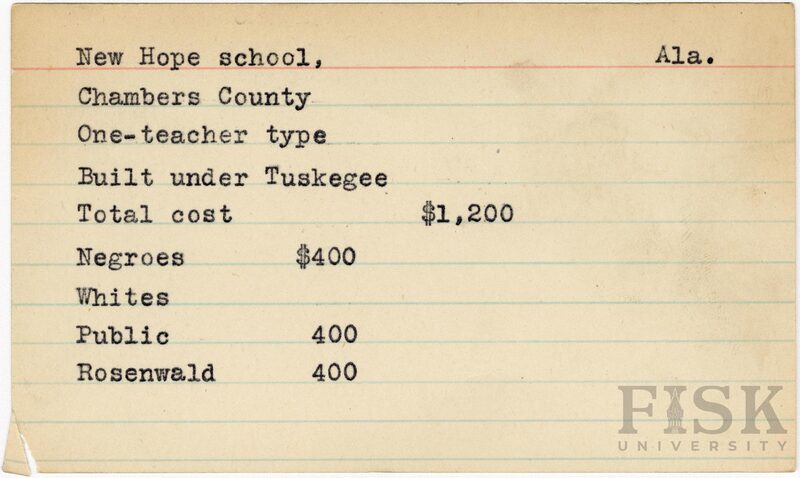 New Hope school, Ala.
Chambers County
One-teacher type
Built under Tuskegee
Total cost $1,200
Negroes $400
Whites
Public 400
Rosenwald 400
FISK
UNIVERSITY